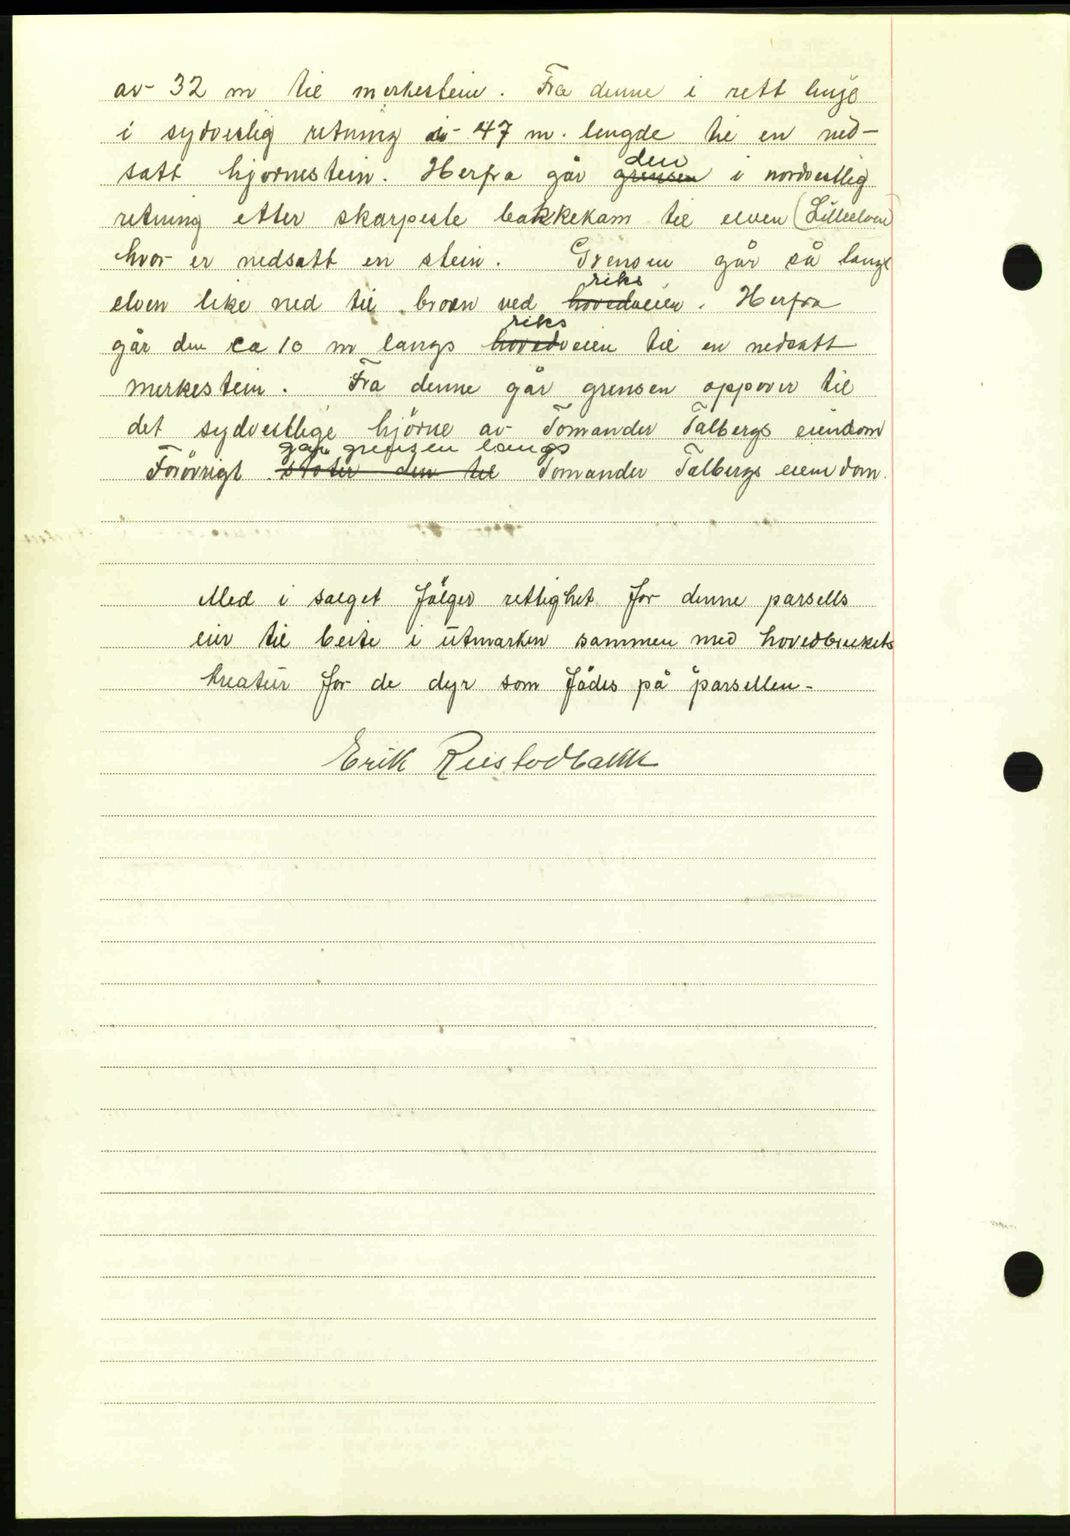 av 32 m til merkestein. Fra denne i rett linje
i sydvestlig retning i 47 m. lengde til en ned-
satt hjørnestein. Herfra går den grensen i nordvestlig
retning etter skarpeste bakkekam til elven (Lilleelven)
hvor er nedsatt en stein. Grensen går så langs
elven like ned til broen ved riks hovedveien. Herfra
går den ca 10 m langs riks hovedveien til en nedsatt
merkestein. Fra denne går grensen oppover til
det sydvestlige hjörne av Tomander Talbergs eiendom
går grensen langs
Forövrigt stöter den til Tomander Talbergs eiendom.
Med i salget fölger rettighet for denne parsells
eier til beite i utmarken sammen med hovedbrukets
kreatur for de dyr som födes på parsellen.
Erik Rustadbakk